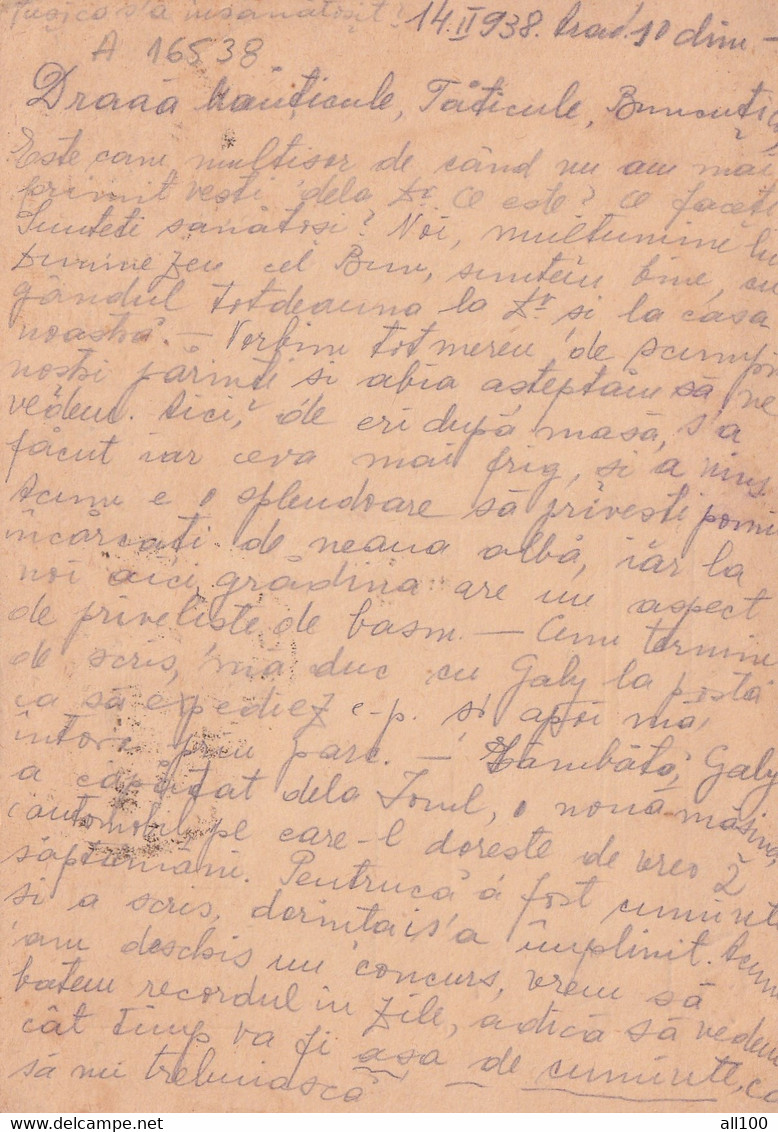 s'a însănătoșit?
14.II 938. Arad. 10 dim. -
A 16538
Dragă Mămiticule, Taticule, Bunicuț
Este cam multisor de când nu am mai
primit vesti dela Dv. Ce este? Ce faceti
Sunteti sanatosi? Noi, multumim lui
Dumnezeu cel Bun, suntem bine, cu
gândul totdeauna la Dv. si la casa
noastră. - Vorbim tot mereu de scumpii
nostri părinti si abia asteptăm să ne
vedem. Aici, de eri după masă, s'a
făcut iar ceva mai frig, si a nins
Acum e o splendoare să privesti pomii
încărcati de neaua albă, iar la
noi aici, grădina are un aspect
de priveliste de basm. - Cum termin
de scris, mă duc cu Gaby la postă
ca să expediez c-p. si apoi mă
întorc prin parc. - Sâmbătă, Gaby
a căpătat dela Ionel, o nouă masina,
automobil, pe care-l doreste de vreo 2
săptămâni. Pentrucă a fost cuminte
si a scris, dorinta i s'a împlinit. Acum
am deschis un concurs, vrem să
batem recordul in zile, adică să vedem
cât timp va fi asa de cuminte, ca
să nu trebuiască
all100